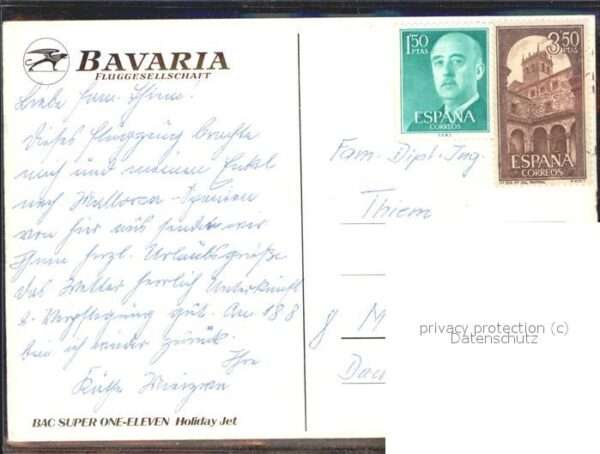 BAVARIA
FLUGGESELLSCHAFT
Liebe Fam. Thiem.
Dieses Flugzeug brachte
mich und meinen Enkel
nach Mallorca - Spanien
von hier aus senden wir
Ihnen herzl. Urlaubsgrüße
das Wetter herrlich Unterkunft
u. Verpflegung gut. Am 18.8
bin ich wieder zurück.
Ihre
Käthe
BAC SUPER ONE-ELEVEN Holiday Jet
1'50
PTAS
ESPAÑA
CORREOS
3'50
PTAS
ESPAÑA
CORREOS
Fam. Dipl. Ing.
Thiem
8 M
Dac
privacy protection (c)
Datenschutz